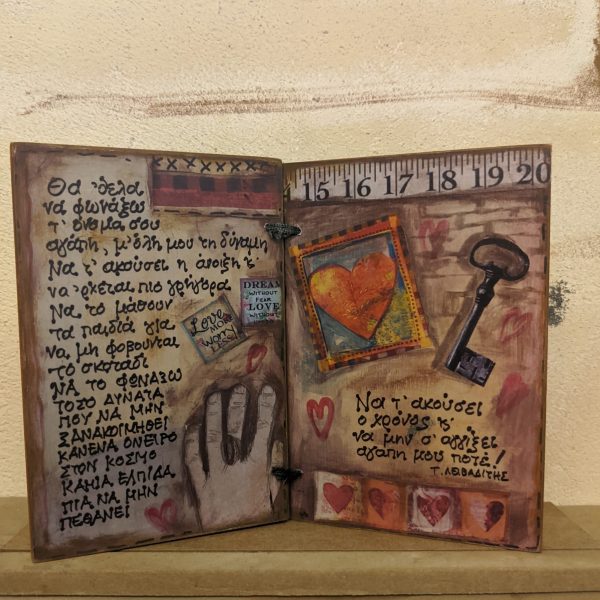 Θα 'θελα
να φωνάξω
τ' όνομα σου
αγάπη, μ' όλη μου τη δύναμη
Να τ' ακούσει η άνοιξη κ'
να 'ρχεται πιο γρήγορα
Να το μάθουν
τα παιδιά για
να μη φοβούνται
το σκοτάδι
ΝΑ ΤΟ ΦΩΝΑΞΩ
ΤΟΣΟ ΔΥΝΑΤΑ
ΠΟΥ ΝΑ ΜΗΝ
ΞΑΝΑΚΟΙΜΗΘΕΙ
ΚΑΝΕΝΑ ΟΝΕΙΡΟ
ΣΤΟΝ ΚΟΣΜΟ
ΚΑΜΙΑ ΕΛΠΙΔΑ
ΠΙΑ ΝΑ ΜΗΝ
ΠΕΘΑΝΕΙ
Love
MORE
worry
LESS
DREAM
WITHOUT
FEAR
LOVE
WITHOUT
15 16 17 18 19 20
Να τ' ακούσει
ο χρόνος κ'
να μην σ' αγγίξει
αγάπη μου ποτέ!
Τ. ΛΕΙΒΑΔΙΤΗΣ